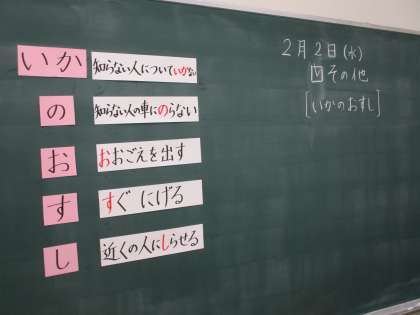 いか
知らない人についていかない
の
知らない人の車にのらない
お
おおごえを出す
す
すぐ にげる
し
近くの人にしらせる
2月2日(水)
その他
[いかのおすし]